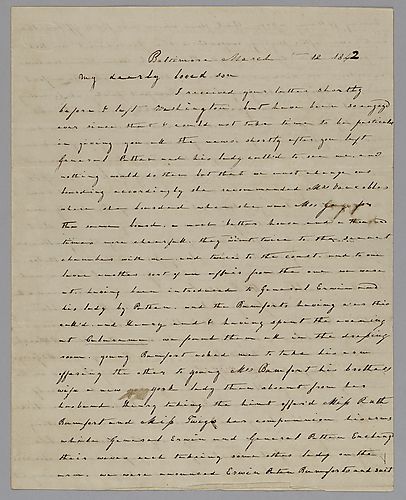 Baltimore March 12 1842
My dearly loved son
I received your letter shortly
before I left Washington but have been so engaged
ever since that I could not take time to be particular
in giving you all the news shortly after you left
General Patten and his lady call'd to see me, and
nothing would do them but that we must change our
boarding accordingly she recommended Mrs
where she boarded when she was Miss
the same board, a much better house and a thousand
times more cheerfull they went twice to the
chambers with me and twice to the court and to one
knows another sort of an affair from the one we were
at, having been introduced to General Erwin and
his lady by Patten, and the Bumforts having also this
call'd and Henry and I having spent the evening
at Culvinum. we found them all in the dressing
room. young Bumfort asked me to take his arm
offering the other to young Mrs Bumfort his brothers
wife a new york lady then absent from her
husband. Henry taking the hint offerd Miss Ruth
Bumfort and Miss Twigs her companion his arms
while General Erwin and General Patten Exchang'd
their wives each taking some other lady on the
arm. we were announced Erwin Patten Bumforts and suit